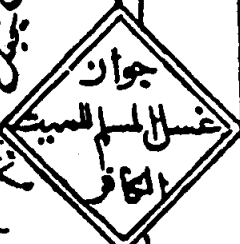 جواز
غسل المسلم للميت
الكافر